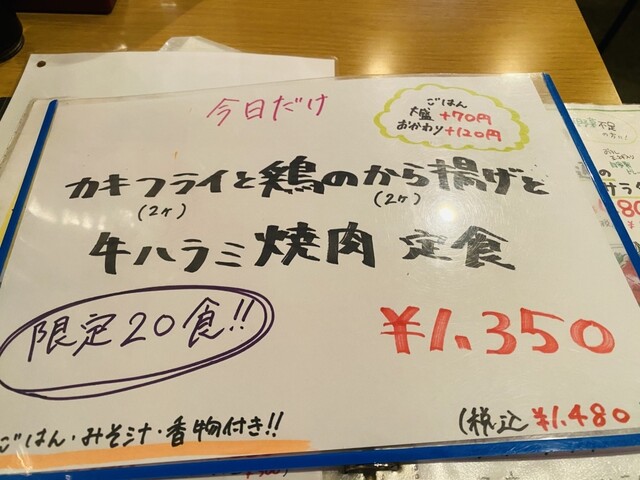 今日だけ
ごはん
大盛 +70円
おかわり +120円
カキフライと鶏のから揚げと
(2ヶ)
(2ヶ)
牛ハラミ焼肉 定食
限定20食!!
¥1,350
ごはん・みそ汁・香物付き!!
(税込 ¥1,480